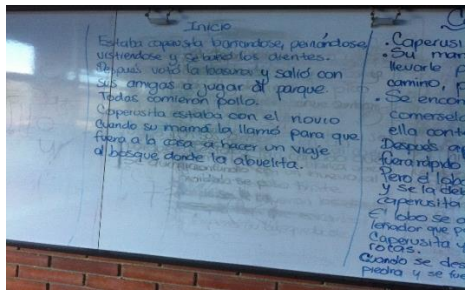 Inicio
Estaba caperusita bañandose, peinándose
vistiendose y se lavó los dientes.
Después votó la basura y salió con
sus amigas a jugar al parque.
Todas comieron pollo.
Caperusita estaba con el novio
cuando su mamá la llamó para que
fuera a la casa a hacer un viaje
al bosque donde la abuelita.
C
. Caperusi
. Su mam
llevarle p
camino, p
. Se encon
comersela
ella cont
Después ap
fuera rápido
Pero el lobo
y se la de
caperusita
El lobo se
leñador que p
Caperusita y
rocas.
Cuando se des
piedra y se fue